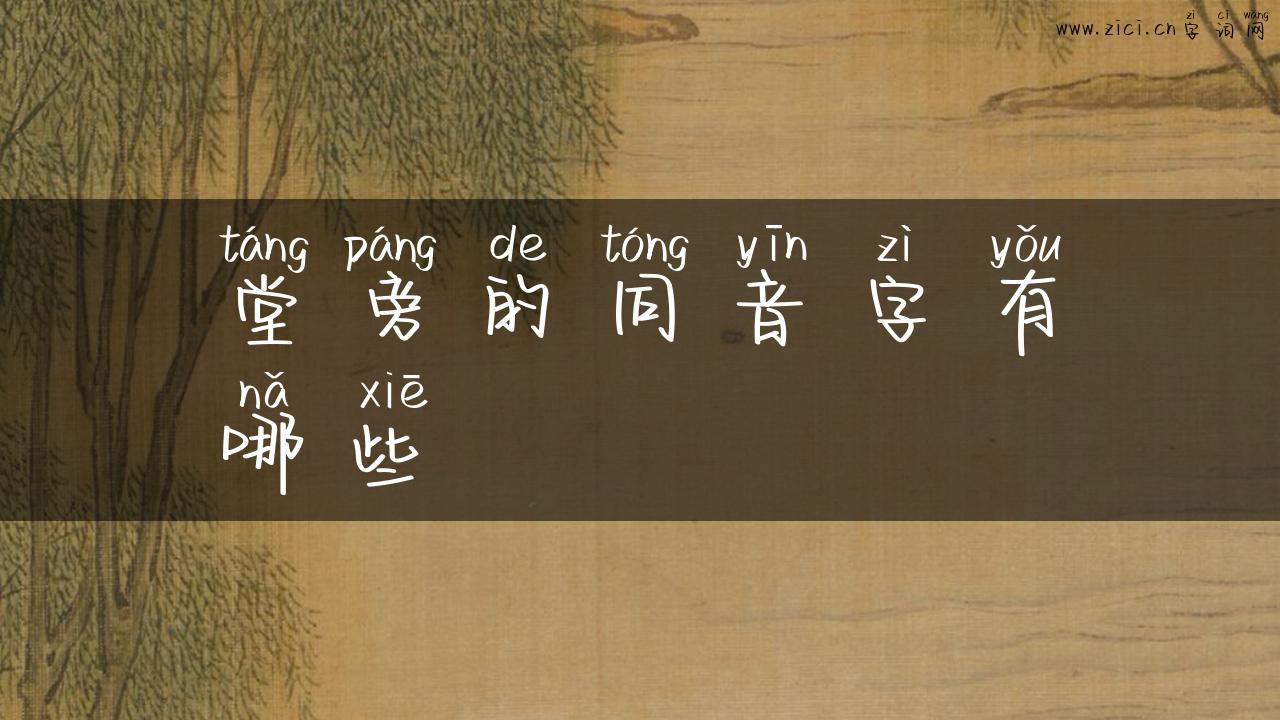 zì cí wǎng
www.zici.cn字词网
táng páng de tóng yīn zì yǒu
堂旁的同音字有
nǎ xiē
哪些